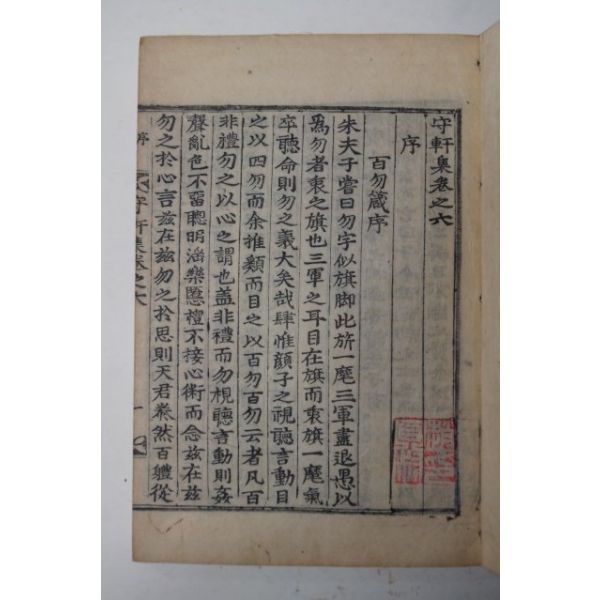 守軒集卷之六
序
百勿箴序
朱夫子嘗曰勿字似旗脚此旂一麾三軍盡退愚以
爲勿者衷之旗也三軍之耳目在旗而衷旗一麾氣
卒聽命則勿之義大矣哉肆惟顔子之視聽言動目
之以四勿而余推類而目之以百勿百勿云者凡百
非禮勿之以心之謂也盖非禮而勿視聽言動則姦
聲亂色不留聰明淫樂慝禮不接心術而念玆在玆
勿之於心言玆在玆勿之於思則天君泰然百軆從
序
守軒集卷之六